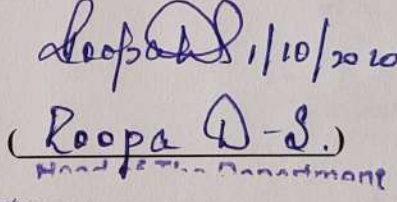 Roopa D S 1/10/2020
(Roopa D-S.)
Head of the Department